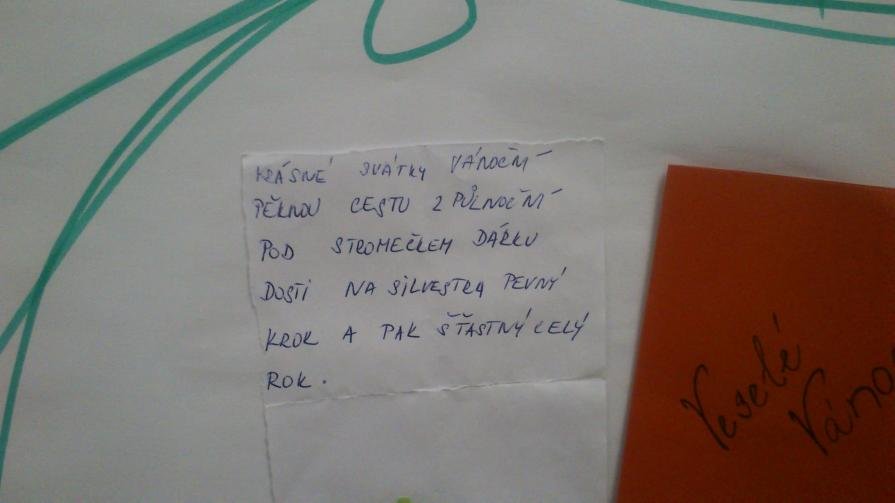 KRÁSNÉ SVÁTKY VÁNOČNÍ
PĚKNOU CESTU Z PŮLNOČNÍ
POD STROMEČKEM DÁRKU
DOSTI NA SiLVESTRA PEVNÝ
KROK A PAK ŠŤASTNÝ CELÝ
ROK.
Veselé
Váno